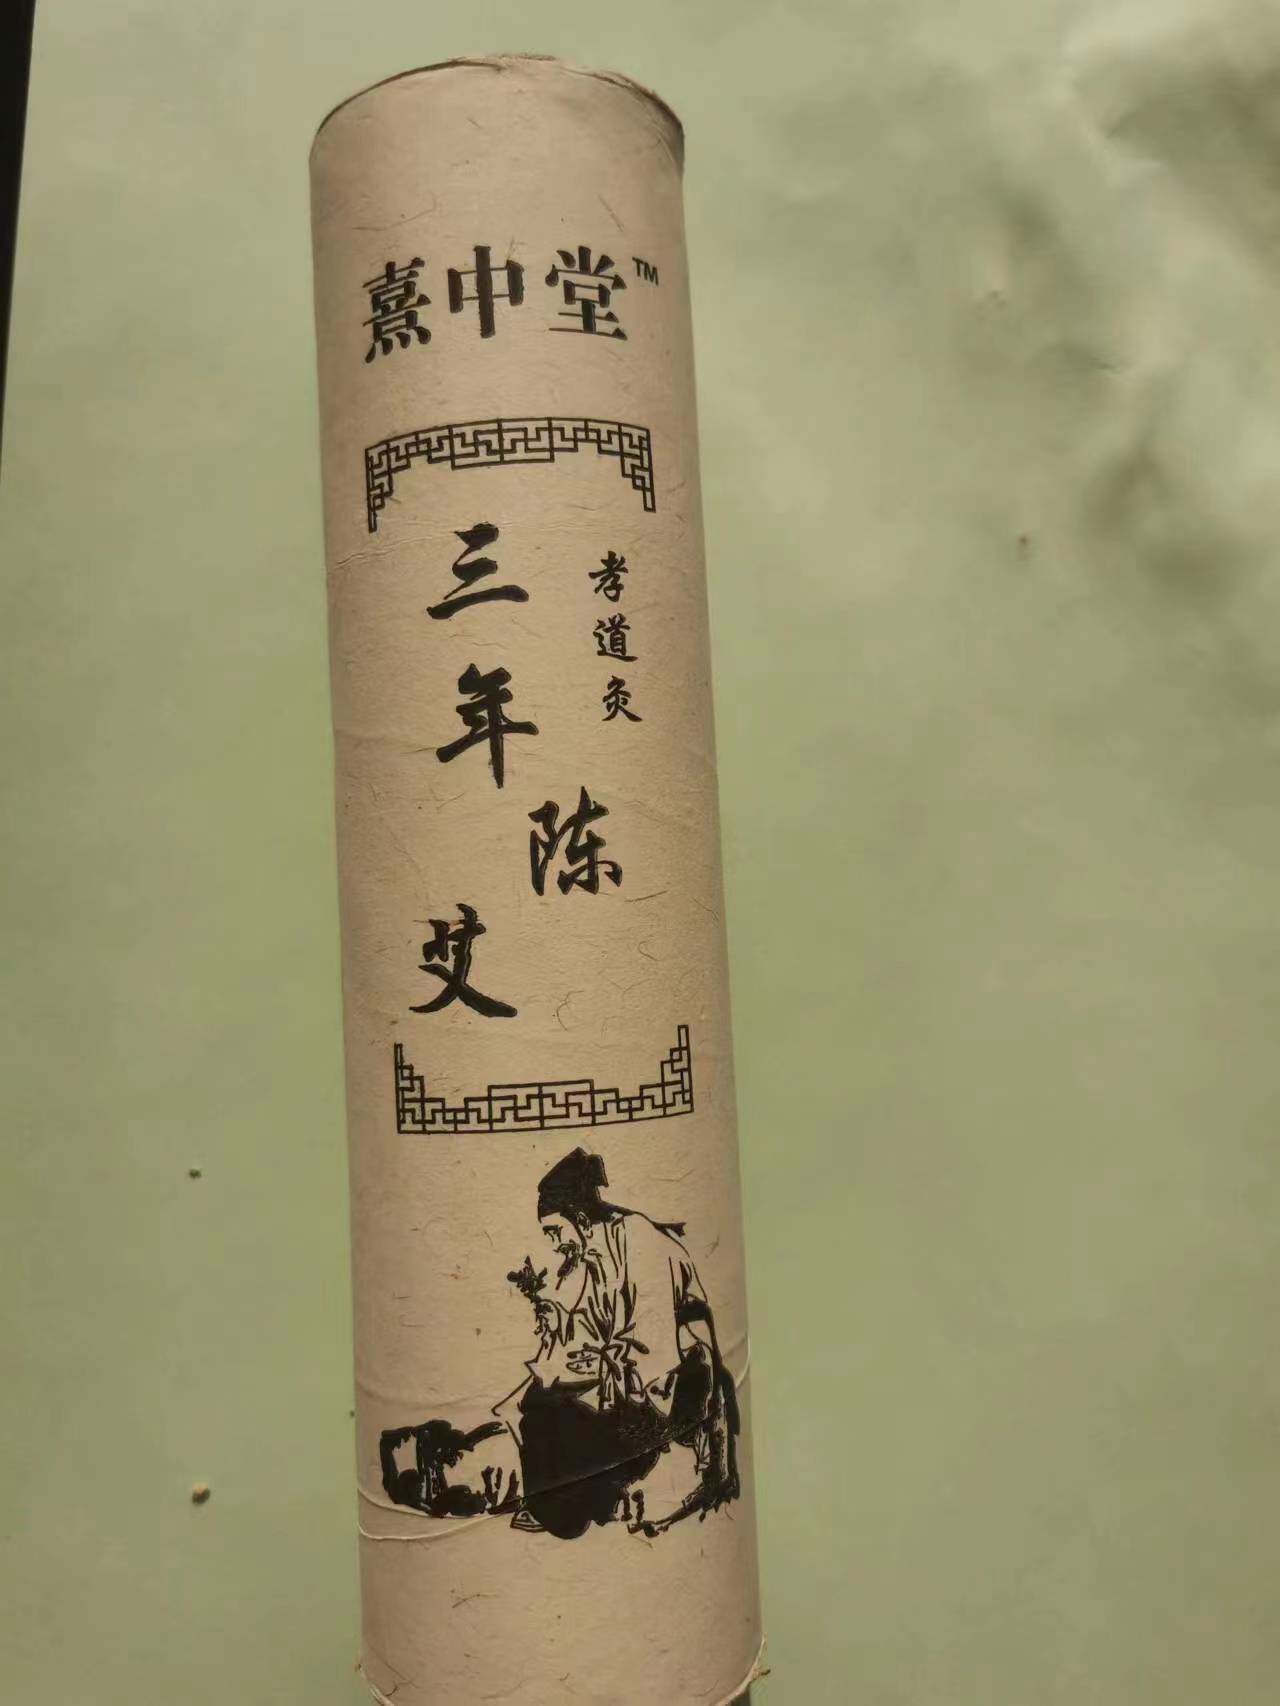 熹中堂™
孝道灸
三年陈艾